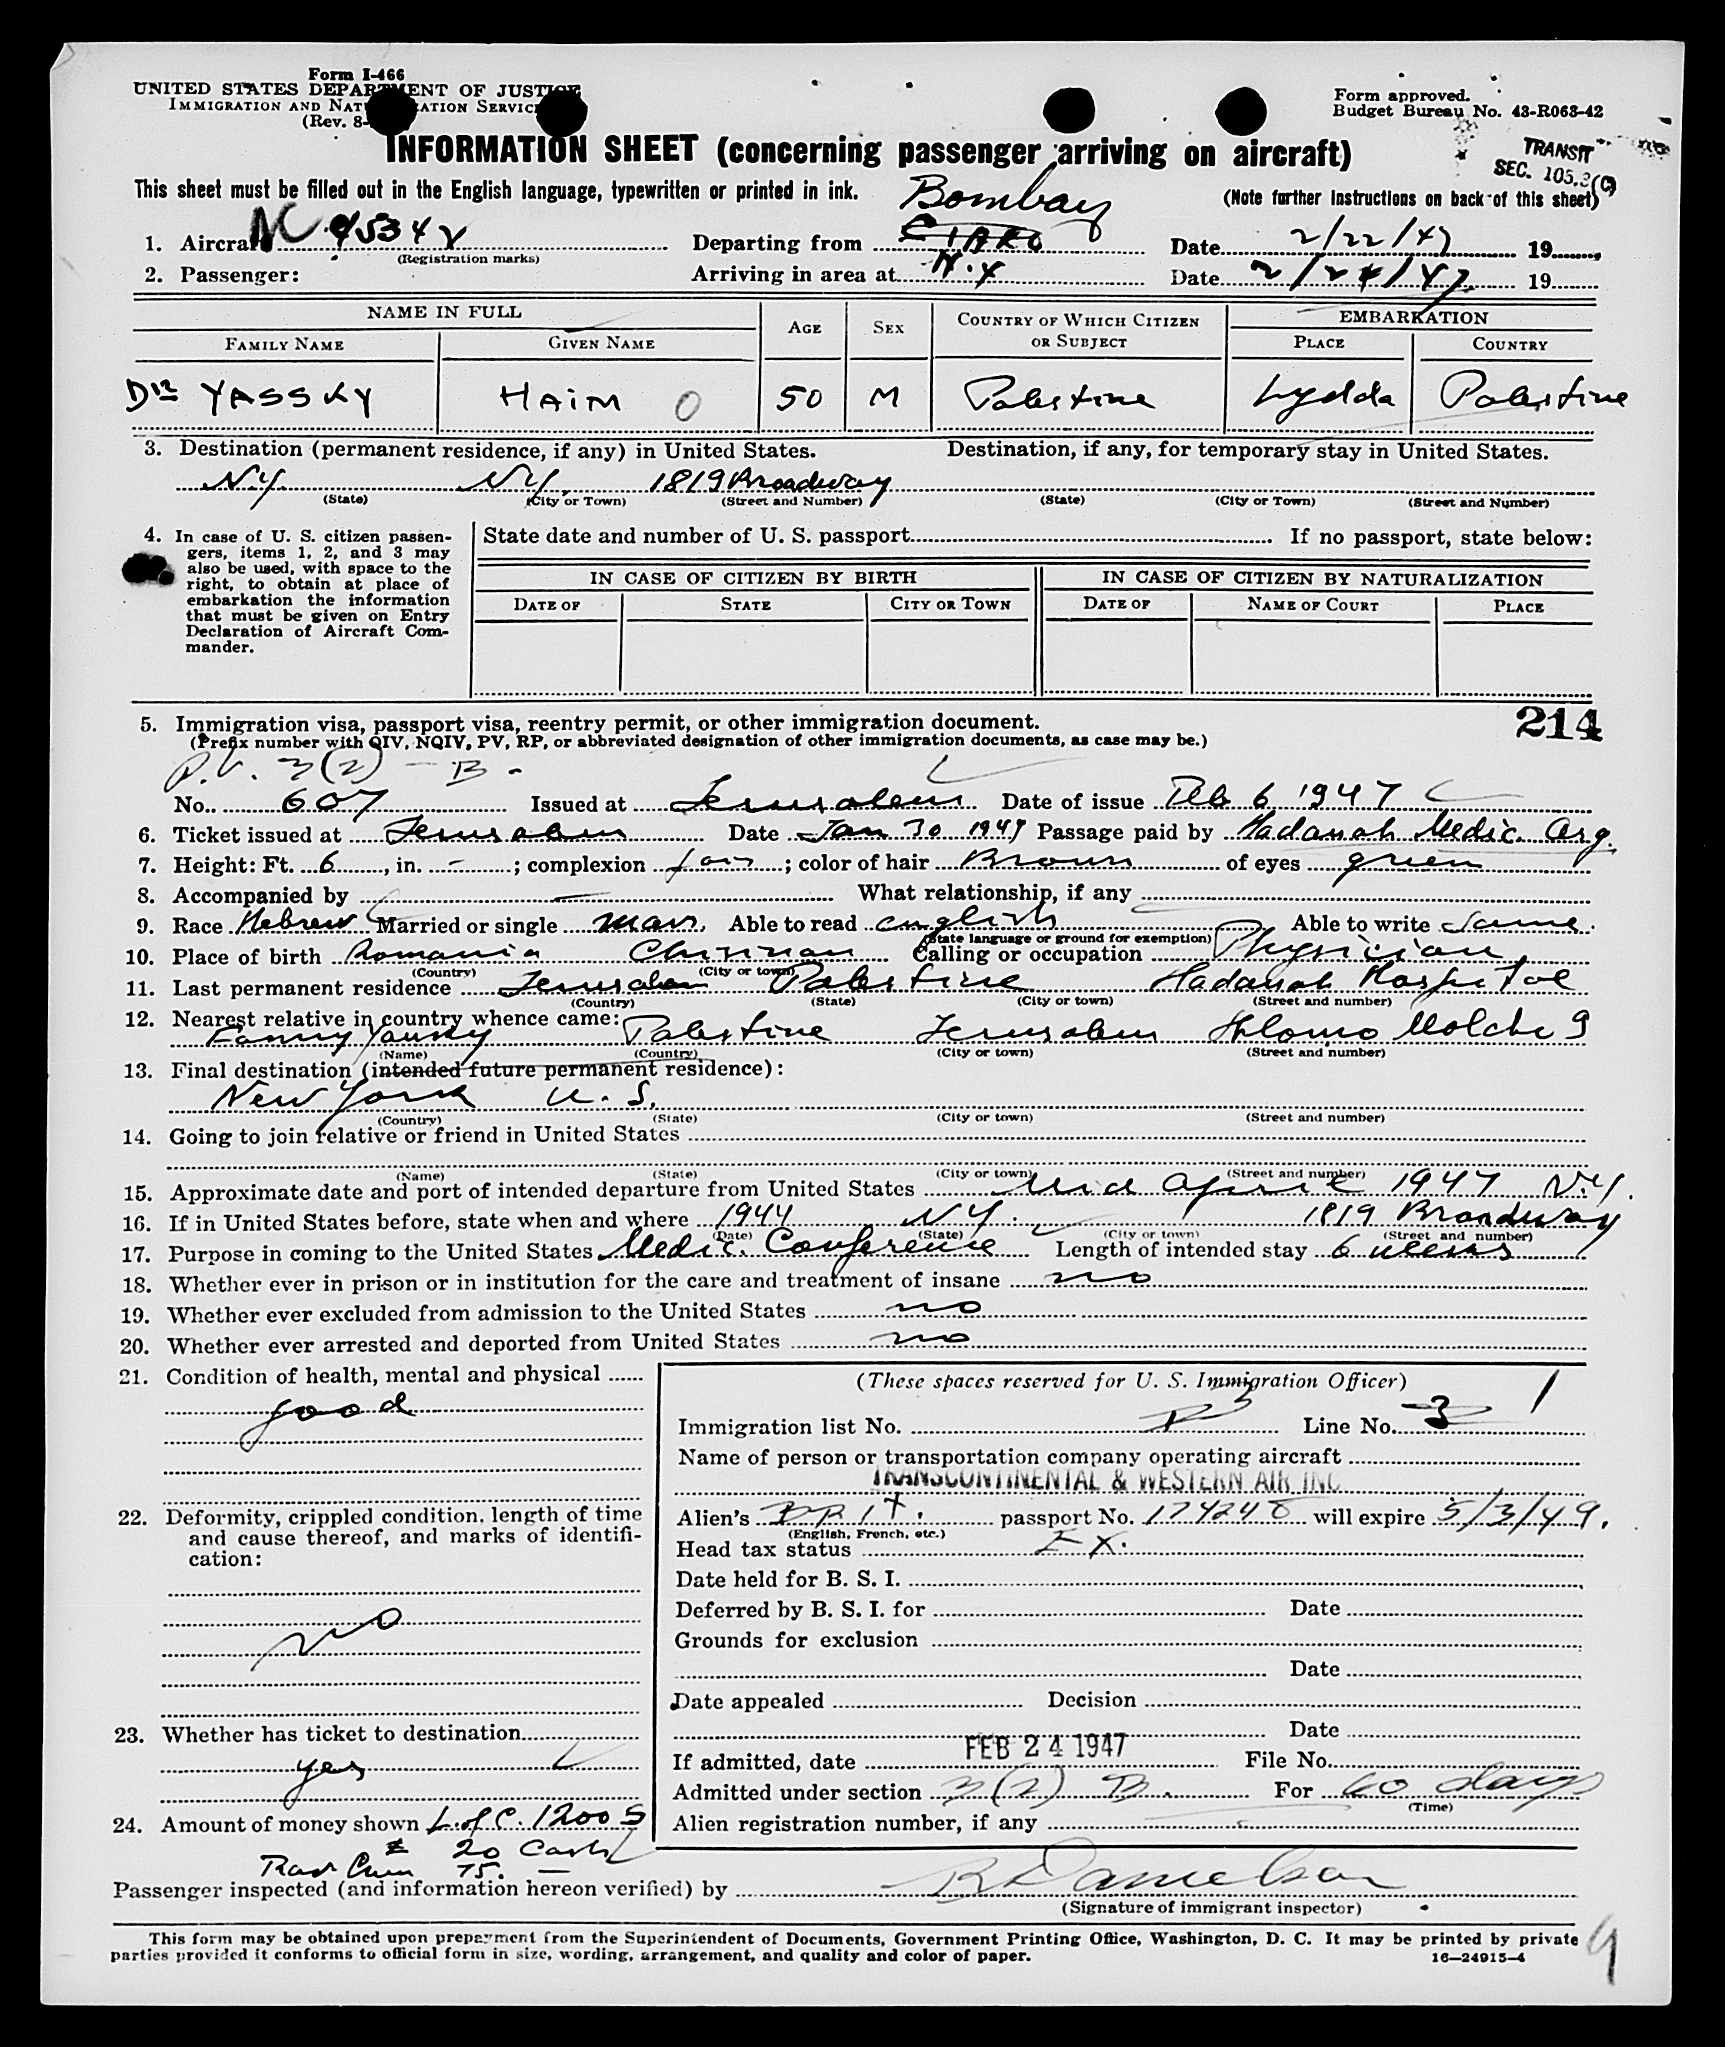 Form I-466
UNITED STATES DEPARTMENT OF JUSTICE
IMMIGRATION AND NATURALIZATION SERVICE
(Rev. 8-
Form approved.
Budget Bureau No. 43-R063-42
TRANSIT
SEC. 105.3(C)
INFORMATION SHEET (concerning passenger arriving on aircraft)
This sheet must be filled out in the English language, typewritten or printed in ink.
(Note further instructions on back of this sheet)
Bombay
1. Aircraft NC 45342 Departing from CIARO Date 2/22/47 19
(Registration marks)
2. Passenger: Arriving in area at N.Y Date 2/24/47. 19
NAME IN FULL EMBARKATION
FAMILY NAME GIVEN NAME AGE SEX COUNTRY OF WHICH CITIZEN OR SUBJECT PLACE COUNTRY
Dr YASSKY HAIM O 50 M Palestine Lydda Palestine
3. Destination (permanent residence, if any) in United States. Destination, if any, for temporary stay in United States.
N.Y. N.Y. 1819 Broadway
(State) (City or Town) (Street and Number) (State) (City or Town) (Street and Number)
4. In case of U. S. citizen passen-
gers, items 1, 2, and 3 may
also be used, with space to the
right, to obtain at place of
embarkation the information
that must be given on Entry
Declaration of Aircraft Com-
mander.
State date and number of U. S. passport If no passport, state below:
IN CASE OF CITIZEN BY BIRTH IN CASE OF CITIZEN BY NATURALIZATION
DATE OF STATE CITY OR TOWN DATE OF NAME OF COURT PLACE
214
5. Immigration visa, passport visa, reentry permit, or other immigration document.
(Prefix number with QIV, NQIV, PV, RP, or abbreviated designation of other immigration documents, as case may be.)
P.V. 3(2) - B -
No. 607 Issued at Jerusalem Date of issue Feb 6 1947
6. Ticket issued at Jerusalem Date Jan 30 1947 Passage paid by Hadassah Medic. Org.
7. Height: Ft. 6, in. -; complexion fair; color of hair Brown of eyes green
8. Accompanied by — What relationship, if any
9. Race Hebrew Married or single marr. Able to read english Able to write same.
(State language or ground for exemption)
10. Place of birth Romania Chisinau Calling or occupation Physician
(Country) (City or town)
11. Last permanent residence Jerusalem Palestine Hadassah Hospital
(Country) (State) (City or town) (Street and number)
12. Nearest relative in country whence came:
Fanny Yassky Palestine Jerusalem Shlomo Molcho 9
(Name) (Country) (City or town) (Street and number)
13. Final destination (intended future permanent residence):
New York U. S.
(Country) (State) (City or town) (Street and number)
14. Going to join relative or friend in United States
(Name) (State) (City or town) (Street and number)
15. Approximate date and port of intended departure from United States Mid April 1947 N.Y.
16. If in United States before, state when and where 1944 N.Y. 1819 Broadway
(Date) (State) (City or town) (Street and number)
17. Purpose in coming to the United States Medic. Conference Length of intended stay 6 weeks
18. Whether ever in prison or in institution for the care and treatment of insane no
19. Whether ever excluded from admission to the United States no
20. Whether ever arrested and deported from United States no
21. Condition of health, mental and physical
good
22. Deformity, crippled condition, length of time
and cause thereof, and marks of identifi-
cation:
no
23. Whether has ticket to destination
yes
24. Amount of money shown L. of C. 1200 $
20 Cash
75.—
(These spaces reserved for U. S. Immigration Officer)
Immigration list No. Line No. 3 1
Name of person or transportation company operating aircraft
TRANSCONTINENTAL & WESTERN AIR INC
Alien's BRIT. passport No. 174248 will expire 5/3/49.
(English, French, etc.)
Head tax status EX.
Date held for B. S. I.
Deferred by B. S. I. for Date
Grounds for exclusion
Date
Date appealed Decision
Date
If admitted, date FEB 24 1947 File No.
Admitted under section 3(2) B. For 60 days
(Time)
Alien registration number, if any
Passenger inspected (and information hereon verified) by B Danielson
(Signature of immigrant inspector)
This form may be obtained upon prepayment from the Superintendent of Documents, Government Printing Office, Washington, D. C. It may be printed by private
parties provided it conforms to official form in size, wording, arrangement, and quality and color of paper.
16—24915-4
9